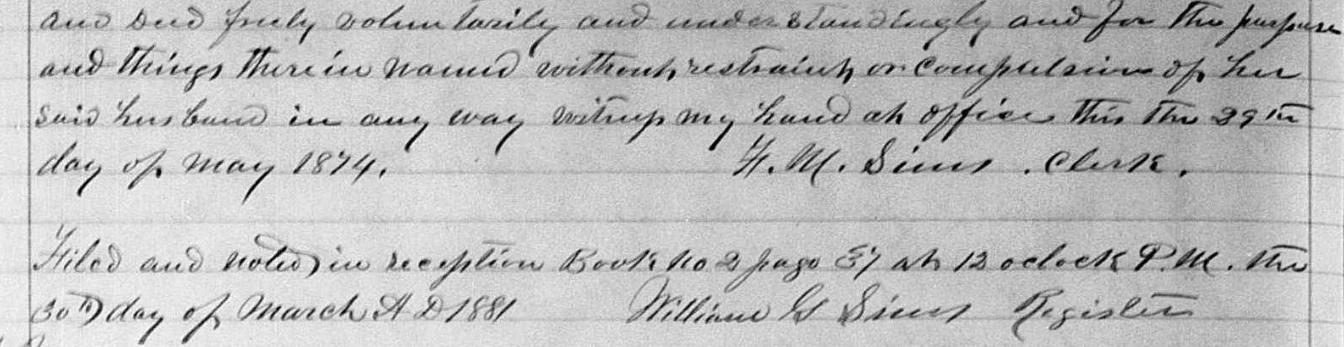 and deed freely voluntarily and understandingly and for the purpose
and things therein named without restraint or compulsion of her
said husband in any way witness my hand at office this the 29th
day of May 1874. F. M. Sims . Clerk.
Filed and noted in reception Book No 2 page 37 at 12 oclock P.M. the
30th day of March A D 1881 William G Sims Register